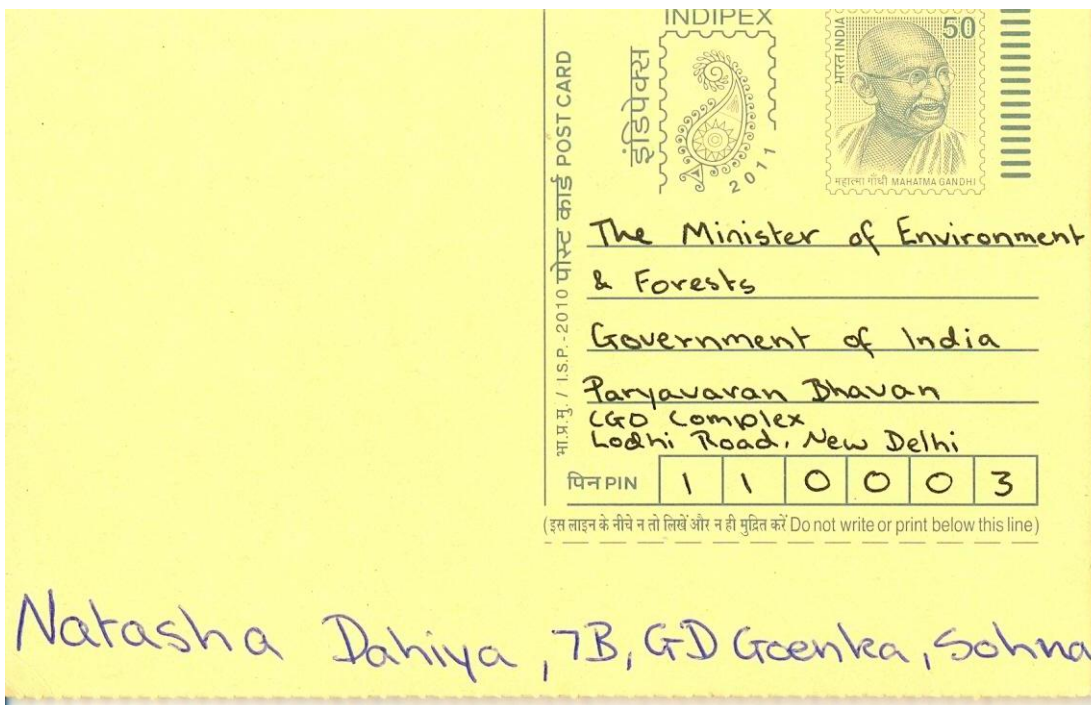 INDIPEX
इंडिपेक्स
2011
भारत INDIA
50
महात्मा गाँधी MAHATMA GANDHI
भा.प्र.मु. / I.S.P.-2010 पोस्ट कार्ड POST CARD
The Minister of Environment
& Forests
Government of India
Paryavaran Bhavan
CGO Complex
Lodhi Road, New Delhi
पिन PIN 1 1 0 0 0 3
(इस लाइन के नीचे न तो लिखें और न ही मुद्रित करें Do not write or print below this line)
Natasha Dahiya, 7B, GD Goenka, Sohna